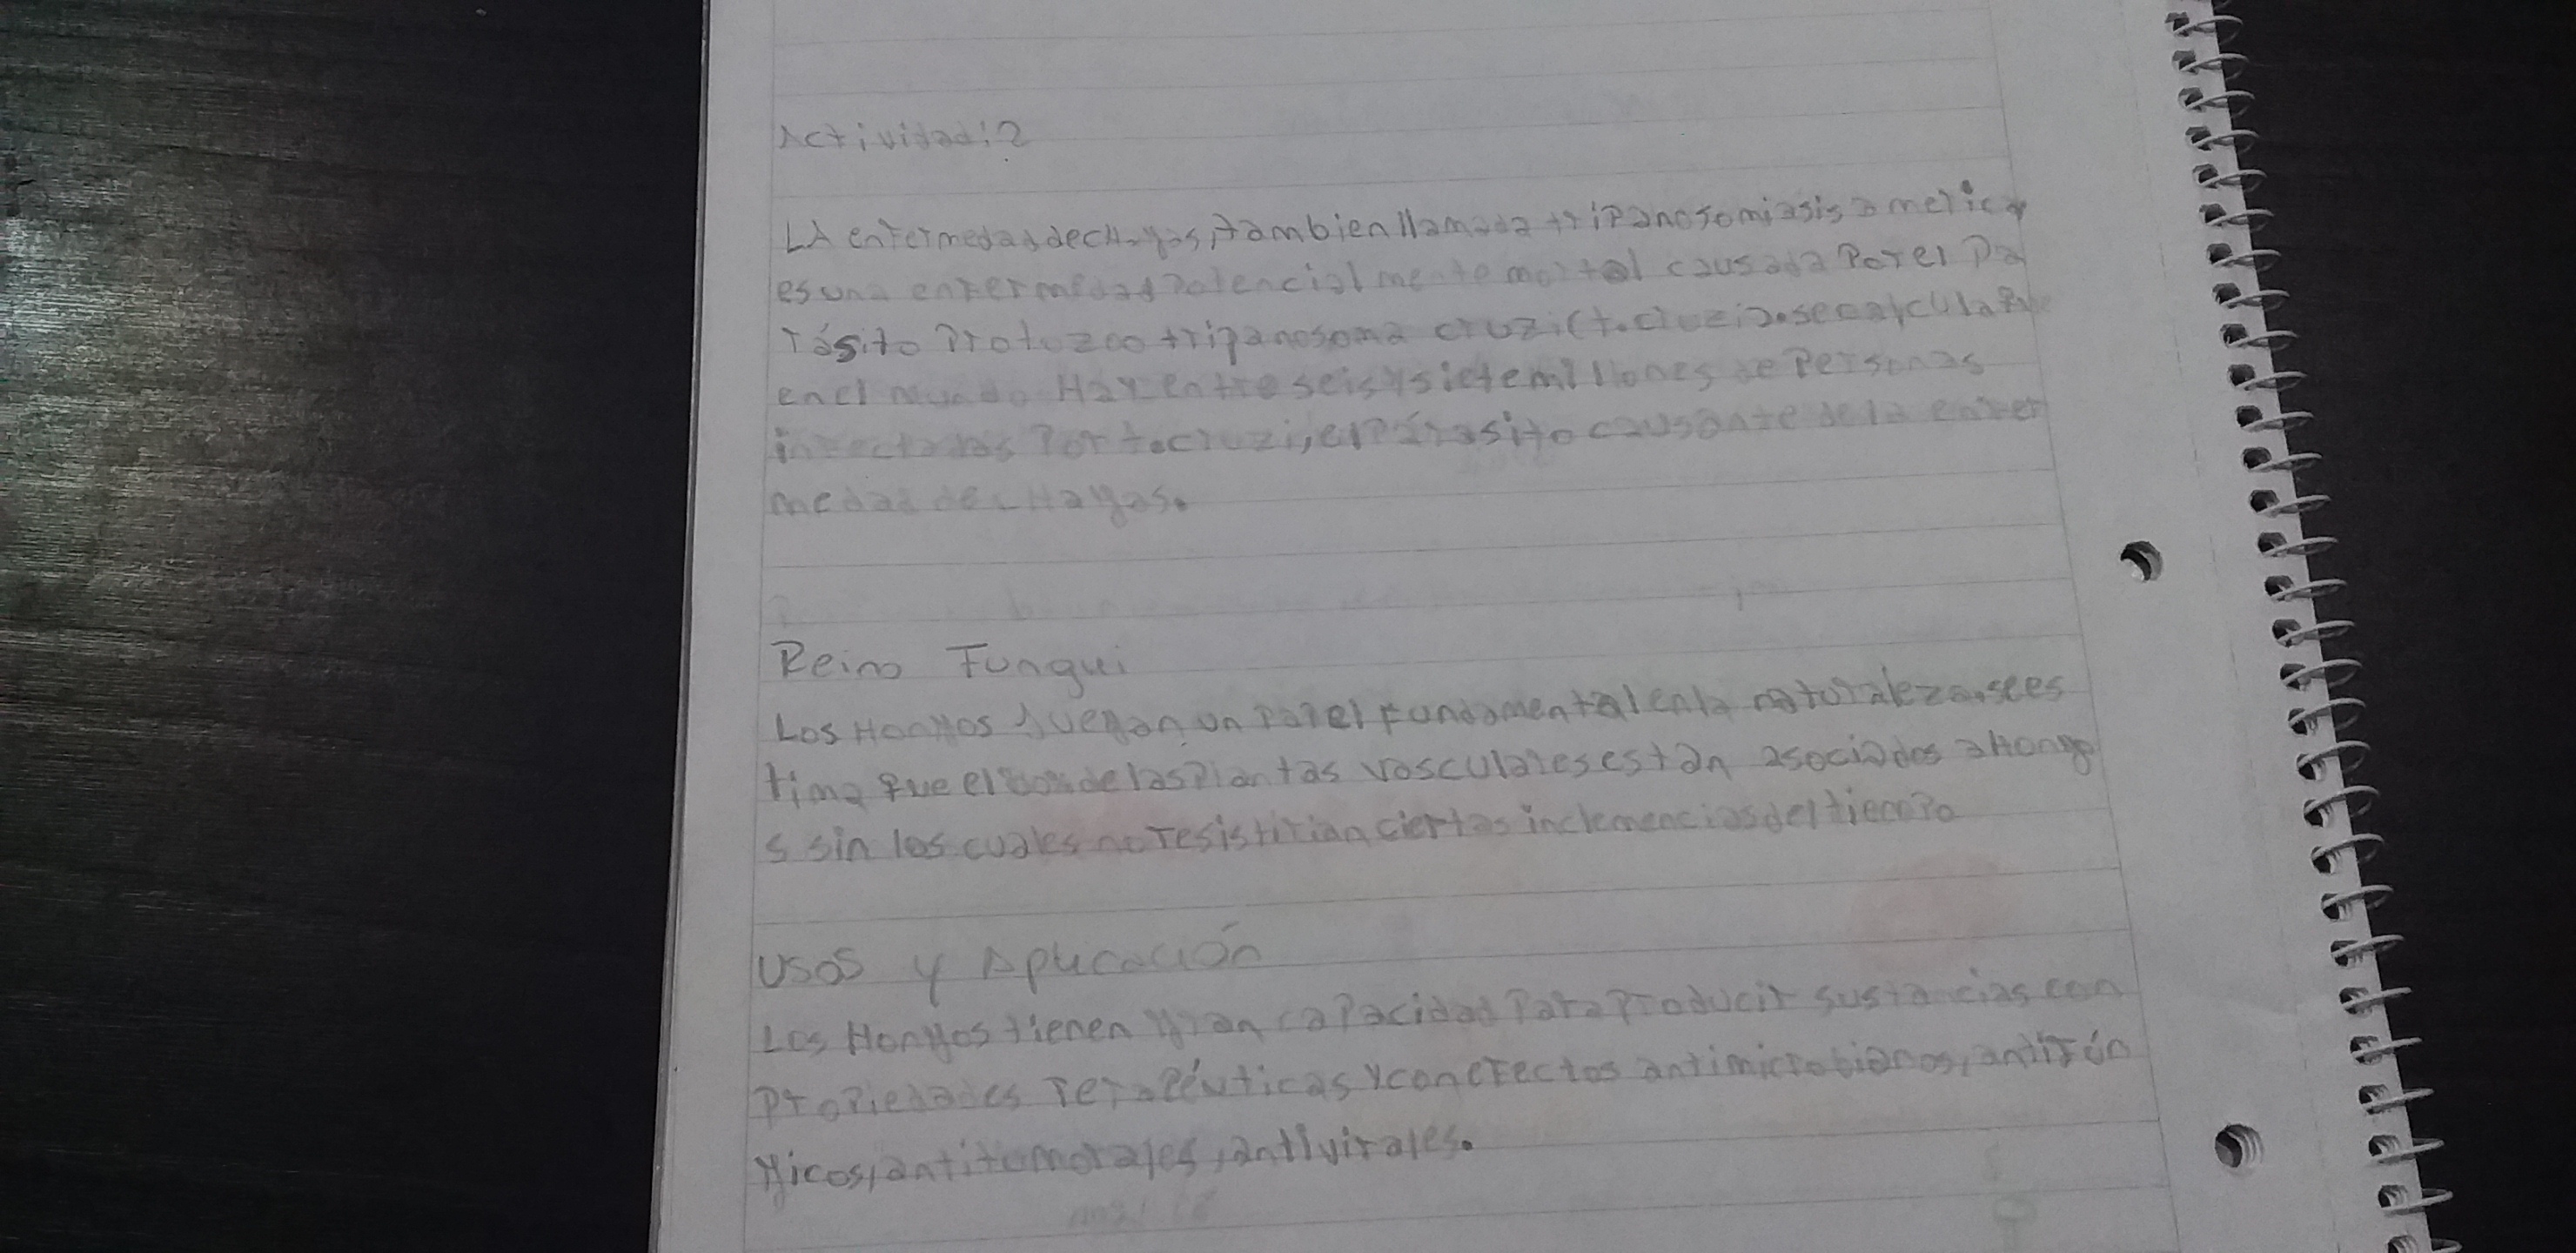 Actividad:2
LA enfermedad de cHagas, tambien llamada tripanosomiasis americ
es una enfermedad Potencialmente mortal causada Por el Pa
rásito Protozoo tripanosoma cruzi(t.cruzi). se calcula que
en el mundo Hay entre seis y siete millones de Personas
infectadas Por t.cruzi, el Párasito causante de la enfer
medad de cHagas.
Reino Fungui
Los Hongos Juegan un Papel fundamental en la naturaleza. se es
tima que el de las Plantas vasculares están asociados a Hongo
s sin los cuales no resistirian ciertas inclemencias del tiempo
Usos y Aplicación
Los Hongos tienen gran capacidad Para Producir sustancias con
Propiedades Terapéuticas y con efectos antimicrobianos, antifún
gicos, antitumorales, antivirales.